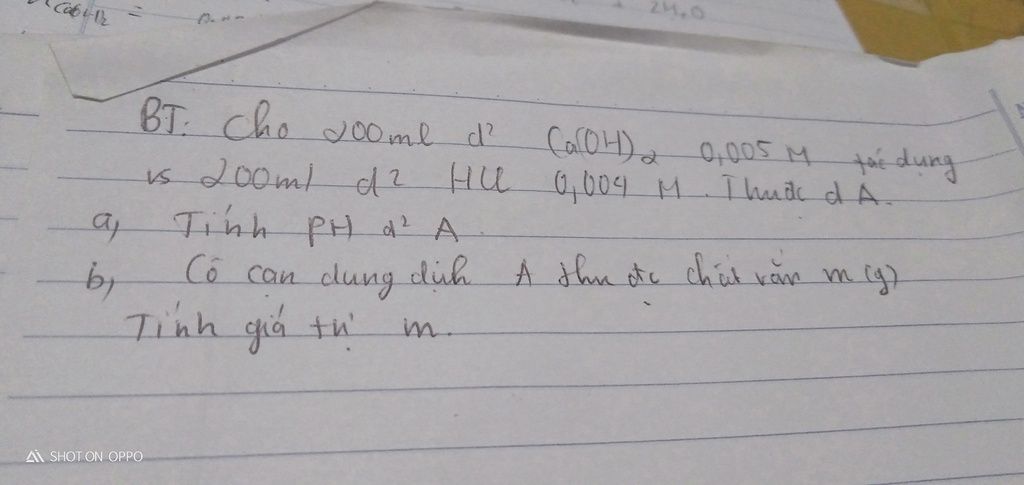 BT: Cho 200ml d² Ca(OH)₂ 0,005 M tác dụng
vs 200ml d² HCl 0,004 M. Thu đc d A.
a, Tính PH d² A.
b, Cô cạn dung dịch A thu đc chất rắn m(g)
Tính giá trị m.
SHOT ON OPPO